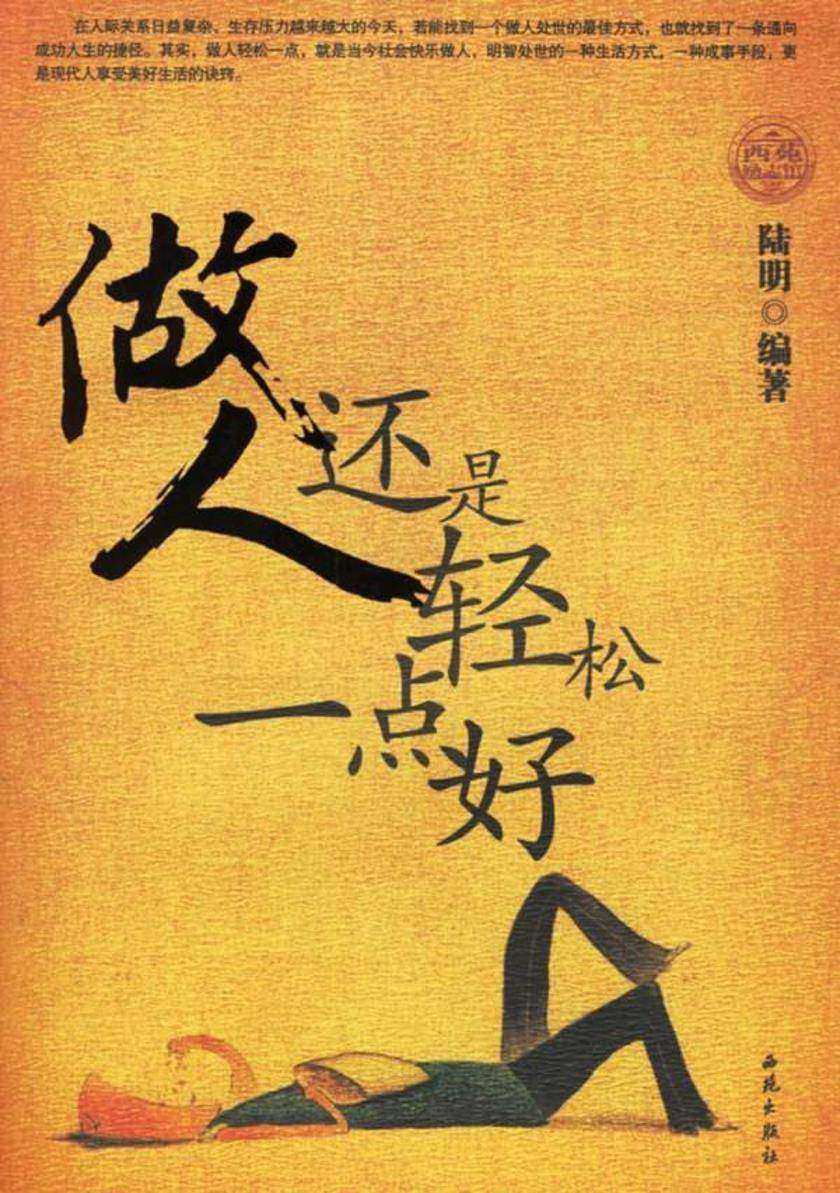 在人际关系日益复杂、生存压力越来越大的今天，若能找到一个做人处世的最佳方式，也就找到了一条通向
成功人生的捷径。其实，做人轻松一点，就是当今社会快乐做人，明智处世的一种生活方式，一种成事手段，更
是现代人享受美好生活的诀窍。
陆明◎编著
做人
还是
轻松
一点好
西苑出版社